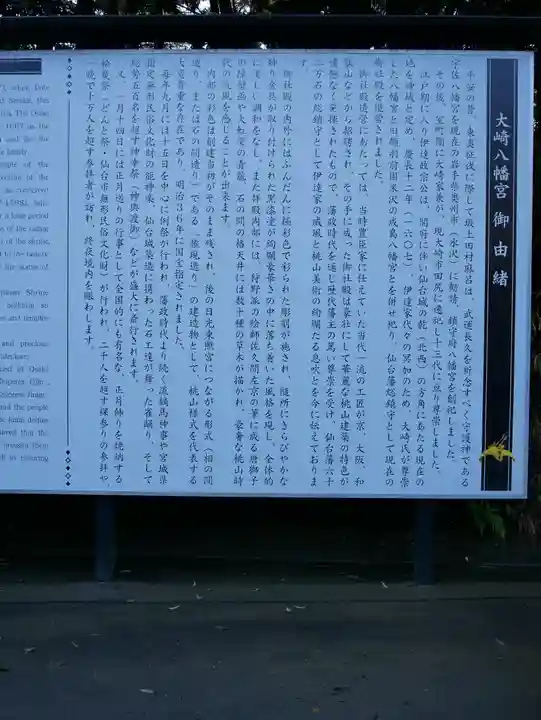 大崎八幡宮 御由緒
平安の昔、東夷征伐に際して坂上田村麻呂は、武運長久を祈念すべく守護神である
宇佐八幡宮を現在の岩手県奥州市(水沢)に勧請、鎮守府八幡宮を創祀しました。
その後、室町期に大崎家兼が、現大崎市田尻に遷祀し十三代に亘り尊崇しました。
江戸期に入り伊達政宗公は、開府に伴い仙台城の乾(北西)の方角にあたる現在の
地を神域と定め、慶長十二年(一六〇七)、伊達家代々の冥加のため、大崎氏が尊崇
した八幡宮と旧領羽前国米沢の成島八幡宮とを併せ祀り、仙台藩総鎮守として現在の
御社殿を造営されました。
御社殿造営にあたっては、当時豊臣家に仕えていた当代一流の工匠が京、大阪、和
歌山などから招聘され、その手に成った御社殿は豪壮にして華麗な桃山建築の特色が
遺憾なく発揮されたもので、藩政時代を通し歴代藩主の篤い尊崇を受け、仙台藩六十
二万石の総鎮守として伊達家の威風と桃山美術の絢爛たる息吹とを今に伝えておりま
す。
御社殿の内外にはふんだんに極彩色で彩られた彫刻が施され、随所にきらびやかな
飾り金具が取り付けられた黒漆塗が絢爛豪華さの中に落ち着いた風格を現し、全体的
に美しい調和をなし、また拝殿内部には、狩野派の絵師佐久間左京の筆に成る唐獅子
の障壁画や大虹梁の青龍、石の間の格天井には数十種の草木が描かれ、豪奢な桃山時
代の気風を感じることが出来ます。
内部の彩色は創建当初がそのまま残され、後の日光東照宮につながる形式(相の間
造り、または石の間造り)である「権現造り」の建造物として、桃山様式を代表する
大変貴重な存在であり、明治36年に国宝指定されました。
毎年九月には十五日を中心に例祭が行われ、藩政時代より続く流鏑馬神事や宮城県
指定無形民俗文化財の能神楽、仙台城築造に携わった石工達が舞った雀踊り、そして
総勢五百名を超す神幸祭(神輿渡御)などが盛大に斎行されます。
又、一月十四日には正月送りの行事として全国的にも有名な、正月飾りを焼納する
松焚祭(どんと祭・仙台市無形民俗文化財)が行われ、二千人を超す裸参りの参拝や、
一晩で十万人を超す参拝者が訪れ、終夜境内を賑わします。